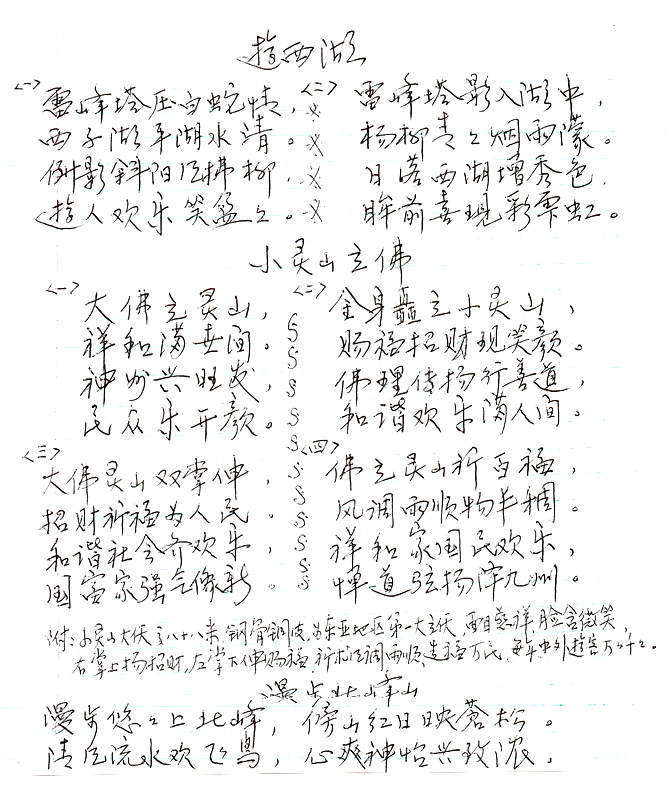 游西湖
<一>
雷峰塔压白蛇情，
西子湖平湖水清。
倒影斜阳风拂柳，
游人欢乐笑盈々。
<二>
雷峰塔影入湖中，
杨柳青々烟雨濛。
日落西湖增秀色，
眸前喜现彩霓虹。
小灵山立佛
<一>
大佛立灵山，
祥和满世间。
神州兴旺发，
民众乐开颜。
<二>
金身矗立小灵山，
赐福招财现笑颜。
佛理传扬行善道，
和谐欢乐满人间。
<三>
大佛灵山双掌伸，
招财祈福为人民。
和谐社会齐欢乐，
国富家强气像新。
<四>
佛立灵山祈百福，
风调雨顺物丰稠。
祥和家国民欢乐，
惮道弦扬泽九州。
附：小灵山大佛立八十八米，钢骨铜皮，为东亚地区第一大立佛，面目慈祥，脸含微笑，
右掌上扬招财，左掌下伸赐福，祈求风调雨顺，造福万民，每年中外游客万千々。
漫步北峰山
漫步悠々上北峰，傍山红日映苍松。
清风流水欢飞鸟，心爽神怡兴致浓。